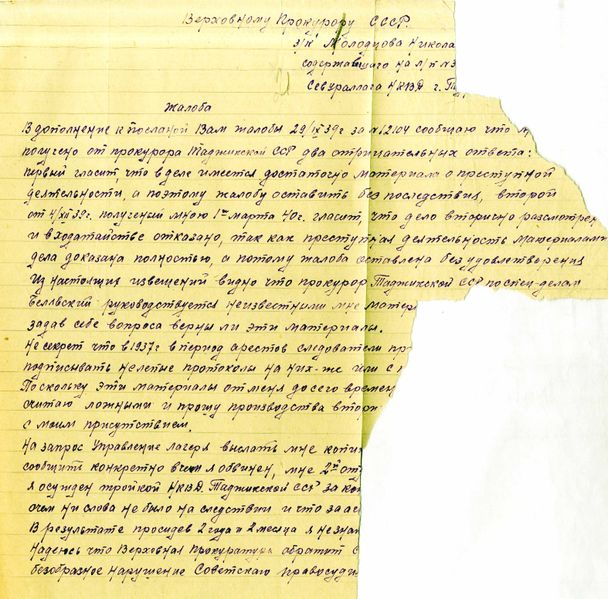 Верховному Прокурору СССР.
з/к Молодцова Никола
содержавшаго на л/п №3
Севураллага НКВД г. Та
Жалоба
В дополнение к посланой Вам жалобы 29/IX 39г за №12104 сообщаю что м
получено от прокурора Таджикской ССР два отрицательных ответа:
первый гласит что в деле имеется достаточно материала о преступной
деятельности, а поэтому жалобу оставить без последствия, второй
от 4/XII 39г. полученый мною 1го марта 40г. гласит, что дело вторично разсмотрен
и в ходатайстве отказано, так как преступная деятельность материалами
дела доказана полностью, а потому жалоба оставлена без удовлетворения
Из настоящих извещений видно что прокурор Таджикской ССР по спец-делам
Белявский руководствуется неизвестными мне матер
задав себе вопроса верны ли эти материалы.
Не секрет что в 1937г в период арестов следователи пр
подписывать нелепые протоколы на них-же или с
Поскольку эти материалы от меня до сего времен
считаю ложными и прошу производства втори
с моим присутствием.
На запрос Управление лагеря выслать мне копи
сообщить конкретно в чем я обвинен, мне 2й от
я осужден тройкой НКВД. Таджикской ССР за ко
о чем ни слова не было на следствии и что за ас
В результате просидев 2 года и 2 месяца я не зна
Надеюсь что Верховная прокуратура обратит с
безобразное нарушение Советскаго правосуди